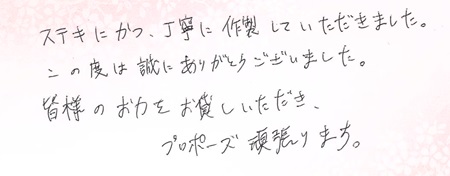 ステキにかつ、丁寧に作製していただきました。
この度は誠にありがとうございました。
皆様のお力をお貸しいただき、
プロポーズ頑張りまち。